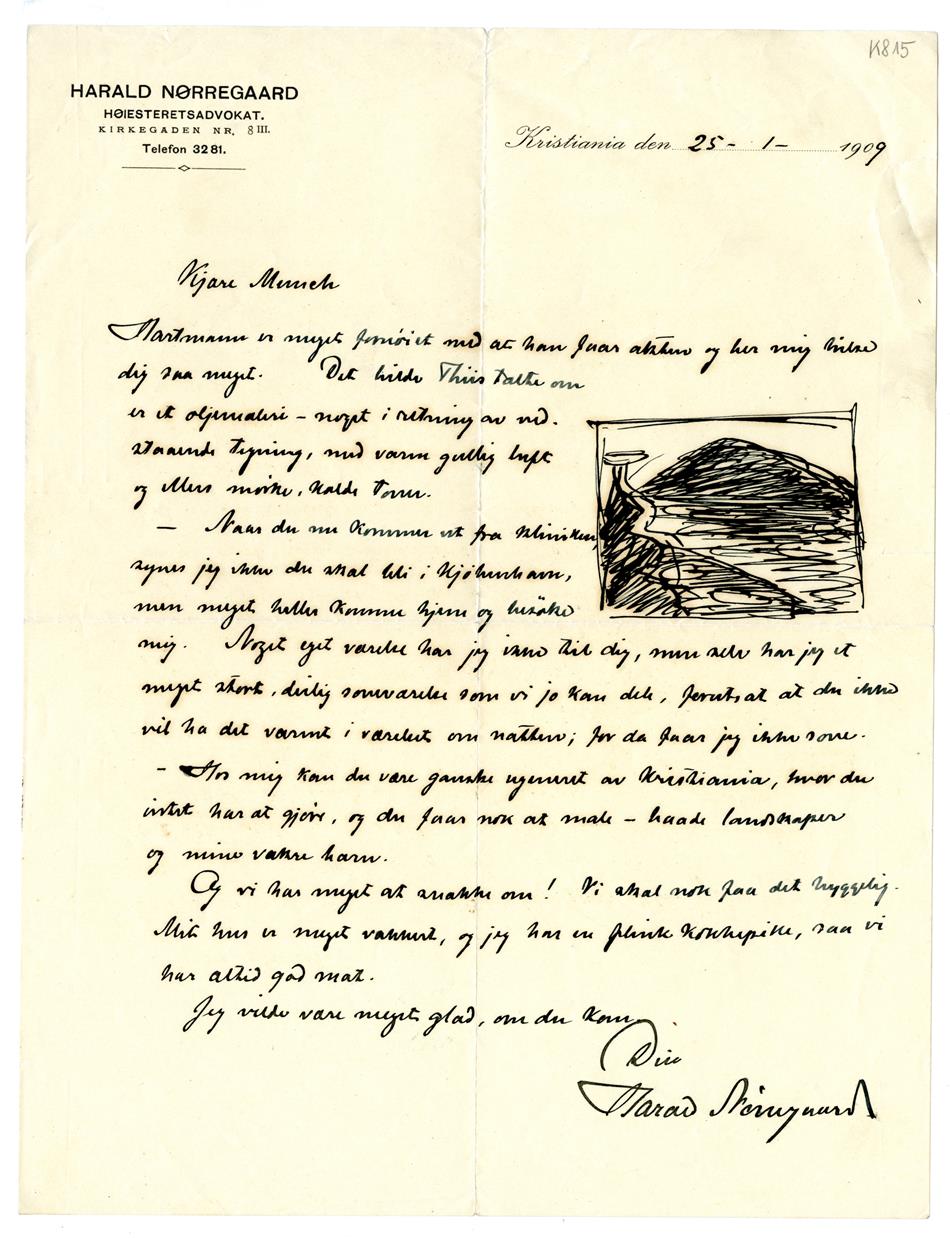 K815
HARALD NØRREGAARD
HØIESTERETSADVOKAT.
KIRKEGADEN NR. 8 III.
Telefon 3281.
Kristiania den 25 - 1 - 1909
Kjære Munch
Hartmann er meget fornøiet med at han faar aktten og ber mig hilse
dig saa meget. Det bilde Thiis talte om
er et oljemaleri – noget i retning av ved-
staaende tegning, med varm gullig luft
og ellers mørke, kolde toner.
— Naar du nu kommer ut fra kliniken,
synes jeg ikke du skal bli i Kjøbenhavn,
men meget heller komme hjem og besøke
mig. Noget eget værelse har jeg ikke til dig, men selv har jeg et
meget stort, deilig soveværelse som vi jo kan dele, forutsat at du ikke
vil ha det varmt i værelset om natten; for da faar jeg ikke sove.
– Hos mig kan du være ganske ugeneret av Kristiania, hvor du
intet har at gjøre, og du faar nok at male – baade landskaper
og mine vakre barn.
Og vi har meget at snakke om! Vi skal nok faa det hyggelig.
Mit hus er meget vakkert, og jeg har en flink kokkepike, saa vi
har altid god mat.
Jeg vilde være meget glad, om du kom
Din
Harald Nørregaard